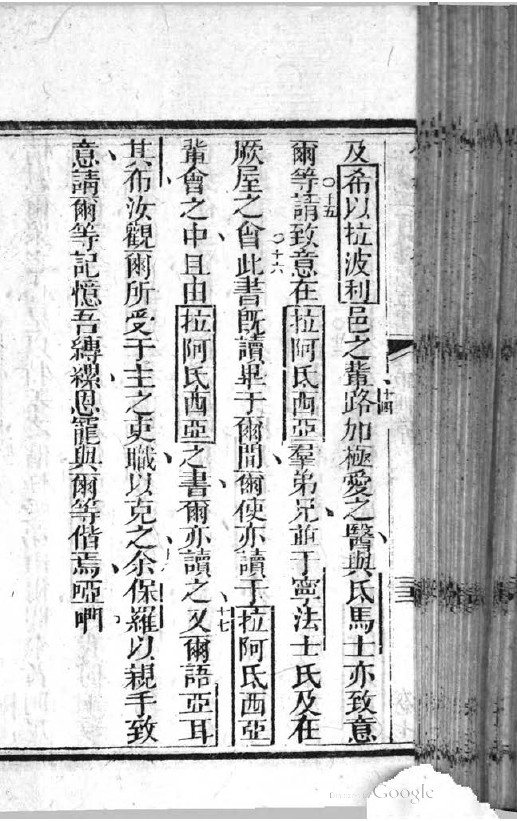 及希以拉波利邑之輩十四路加極愛之醫與氐馬士亦致意
爾等○十五請致意在拉阿氐西亞羣弟兄並于寧法士氏及在
厥屋之會○十六此書既讀畢于爾間爾使亦讀于拉阿氐西亞
輩會之中且由拉阿氐西亞之書爾亦讀之十七又爾語亞耳
其布汝觀爾所受于主之吏職以克之余保羅以親手致
意請爾等記憶吾縛縲恩寵與爾等偕焉啞啊
Google